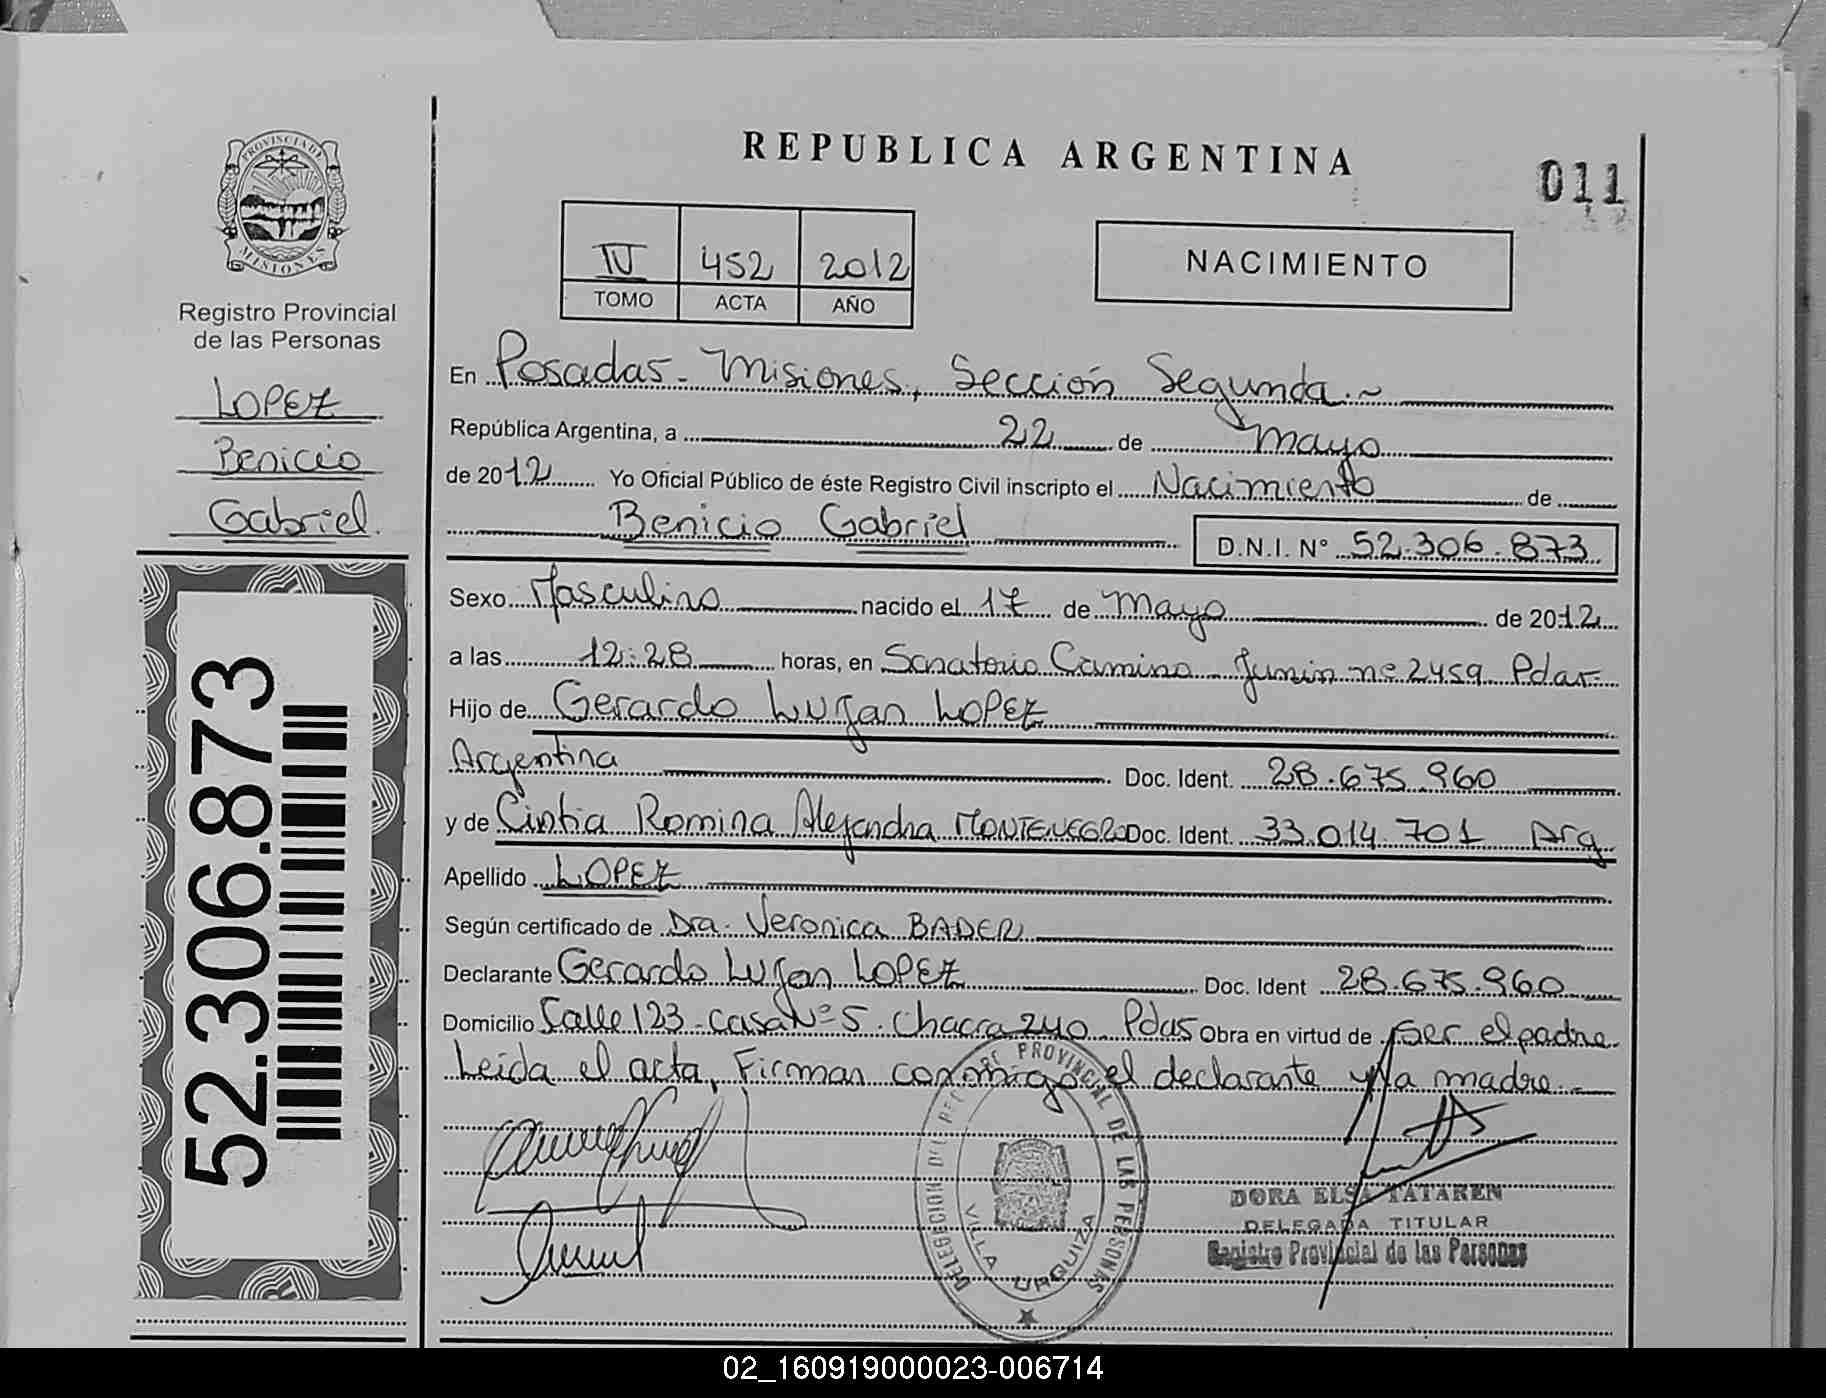 REPUBLICA ARGENTINA
011
PROVINCIA DE
MISIONES
Registro Provincial
de las Personas
LOPEZ
Benicio
Gabriel.
52.306.873
IV 452 2012
TOMO ACTA AÑO
NACIMIENTO
En Posadas - Misiones, Sección Segunda.~
República Argentina, a 22 de Mayo
de 2012 Yo Oficial Público de éste Registro Civil inscripto el Nacimiento de
Benicio Gabriel D.N.I. N° 52.306.873
Sexo Masculino nacido el 17 de Mayo de 2012
a las 12:28 horas, en Sanatorio Camino Junin nº 2459 Pdas-
Hijo de Gerardo Lujan LOPEZ
Argentina Doc. Ident. 28.675.960
y de Cintia Romina Alejandra MONTENEGRO Doc. Ident. 33.014.701 Arg
Apellido LOPEZ
Según certificado de Dra. Veronica BADER
Declarante Gerardo Lujan LOPEZ Doc. Ident 28.675.960
Domicilio Calle 123 - casa Nº 5 - Chacra 240 Pdas Obra en virtud de Ser el padre
Leida el acta, Firman conmigo el declarante y la madre.-
DELEGACION DEL REG. PROVINCIAL DE LAS PERSONAS
VILLA URQUIZA
DORA ELSA TATAREN
DELEGADA TITULAR
Registro Provincial de las Personas
02_160919000023-006714